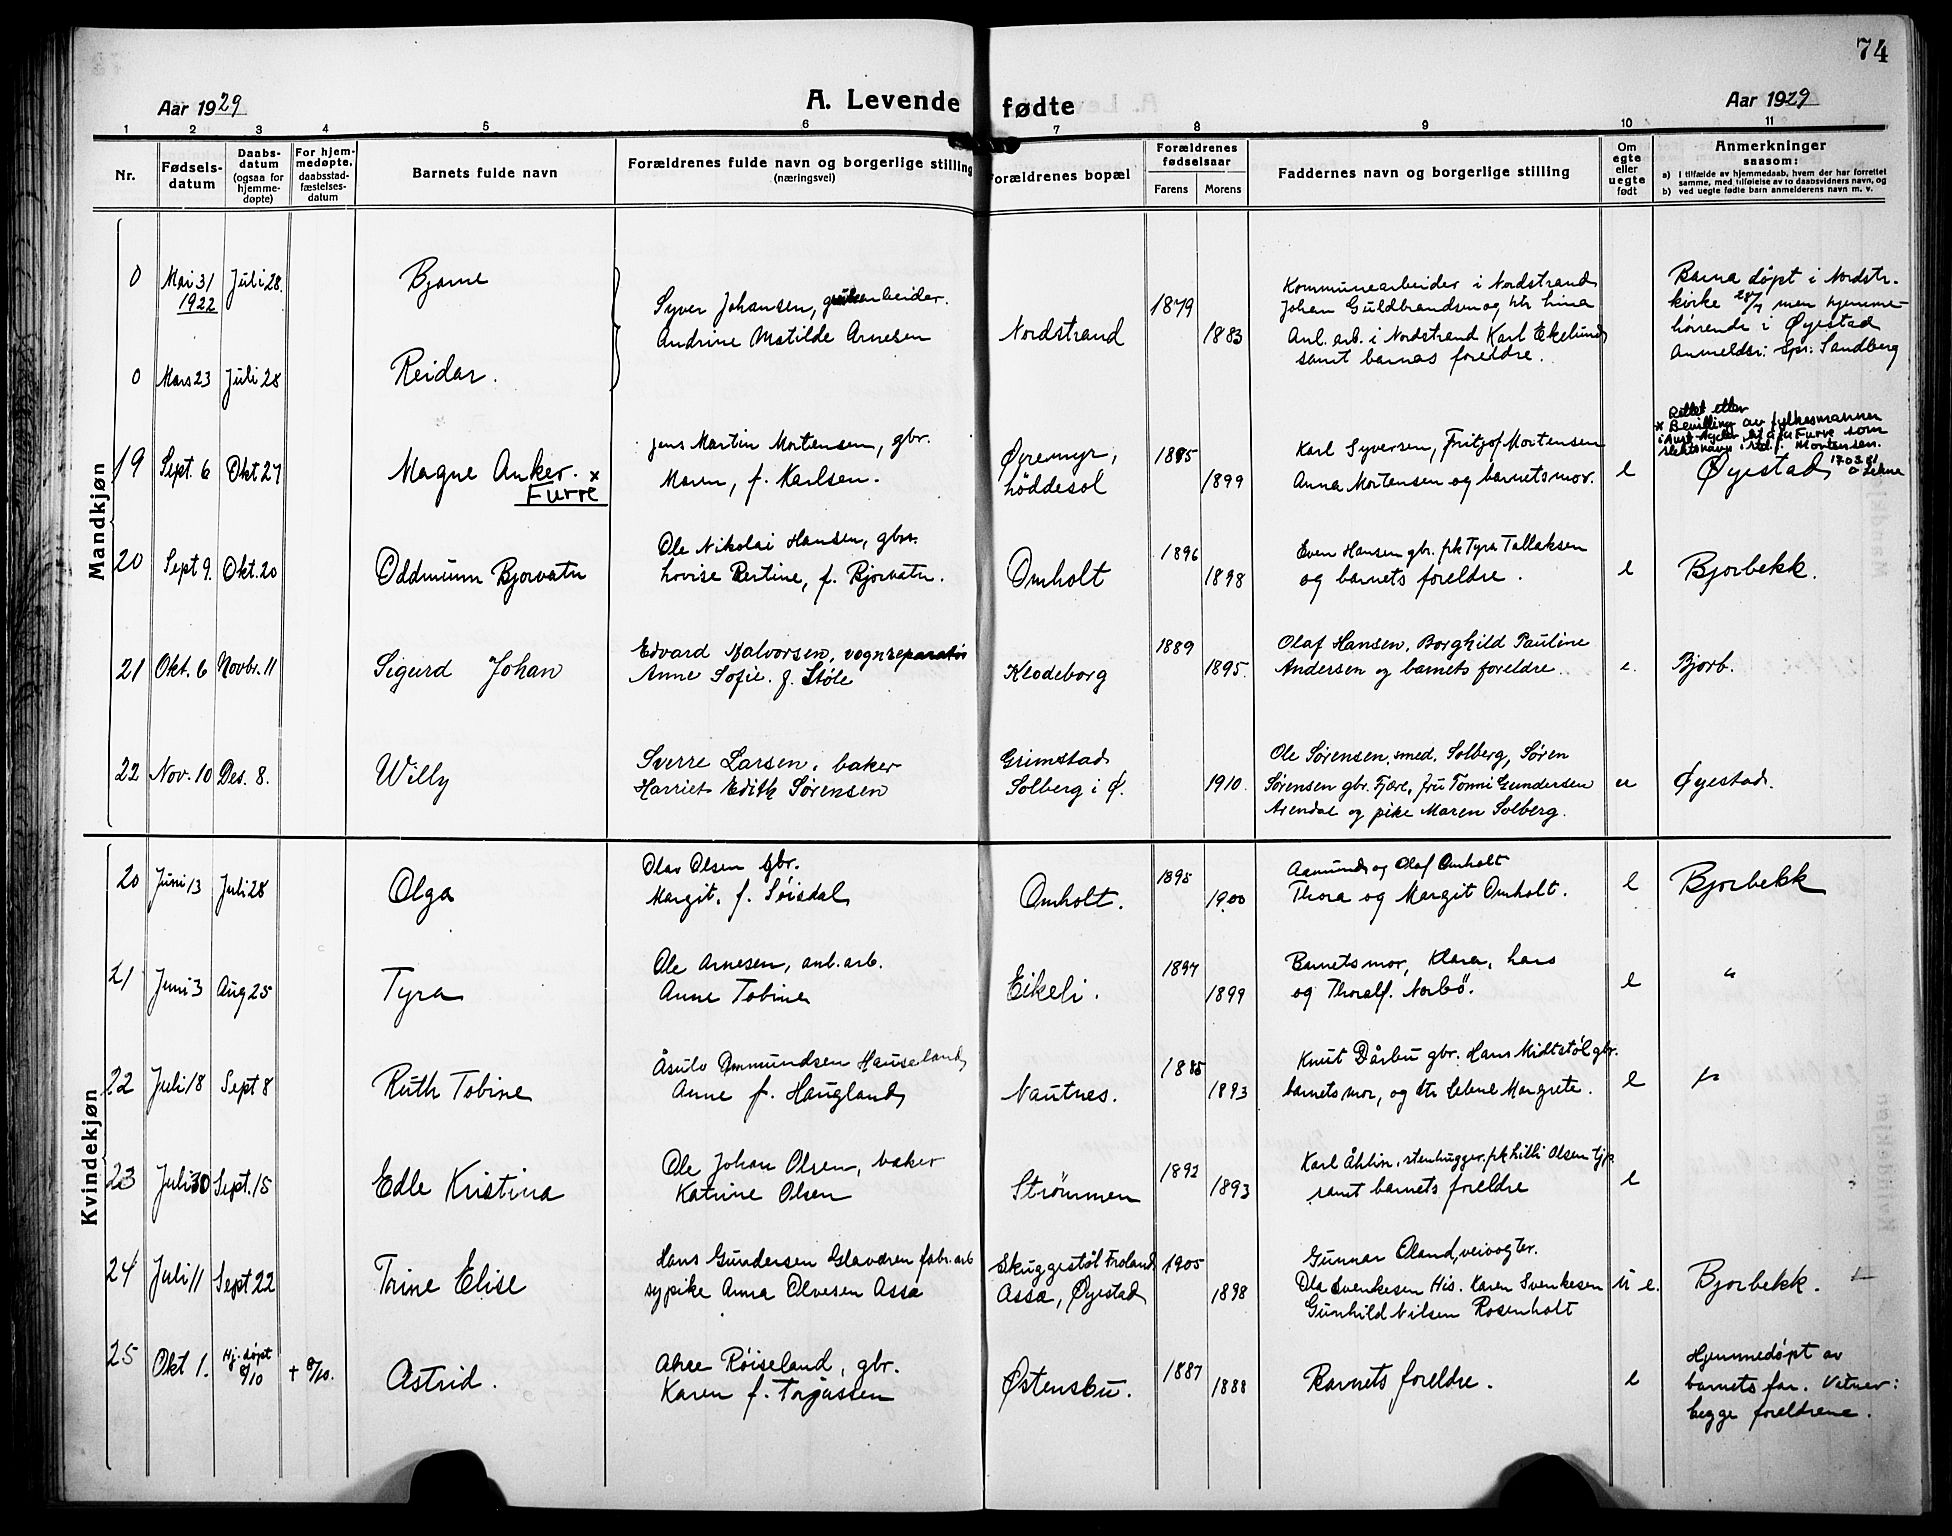 74
Aar 1929
A. Levende fødte
Aar 1929
1 2 3 4 5 6 7 8 9 10 11
Nr.
Fødsels-
datum
Daabs-
datum
(ogsaa for
hjemme-
døpte)
For hjem-
medøpte,
daabsstad-
fæstelses-
datum
Barnets fulde navn
Forældrenes fulde navn og borgerlige stilling
(næringsvei)
Forældrenes bopæl
Forældrenes
fødselsaar
Farens Morens
Faddernes navn og borgerlige stilling
Om
egte
eller
uegte
født
Anmerkninger
saasom:
a) I tilfælde av hjemmedaab, hvem der har forrettet
samme, med tilføielse av to daabsvidners navn, og
b) ved uegte fødte barn anmelderens navn m. v.
Mandkjøn
0 Mai 31 1922 Juli 28. Bjarne
Syver Johansen,
Andrine Matilde Arnesen
Nordstrand 1879 1883
Kommunearbeider i Nordstrand
Johan Guldbrandsen og htr Lina
Anl. arb. i Nordstrand Karl Ekelund
samt barnas foreldre.
Barna døpt i Nordstr.
kirke 28/7 men hjemme-
hørende i Øyestad
Anmelder: Spr. Sandberg
0 Mars 23 Juli 28 Reidar.
19 Sept. 6 Okt 27 Magne Anker. x
Furre
Jens Martin Mortensen, gbr.
Maren, f. Karlsen.
Øyremyr,
Løddesøl
1895 1899
Karl Syversen, Fritjof Mortensen
Anna Mortensen og barnets mor.
e
Rettet etter
x Bevilling av fylkesmannen
i Aust-Agder til å ta Furre som
slektsnavn i std. f. Mortensen.
17.03.81
Øyestad
20 Sept 9. Okt. 20 Oddmunn Bjorvatn
Ole Nikolai Hansen, gbr.
Lovise Bertine, f. Bjorvatn.
Omholt 1896 1898
Even Hansen gbr. pk Tyra Tallaksen
og barnets foreldre.
e Bjorbekk.
21 Okt. 6 Novbr. 11 Sigurd Johan
Edvard Halvorsen, vognreparatør
Anne Sofie. f. Støle
Klodeborg 1889 1895.
Olaf Hansen, Borghild Pauline
Andersen og barnets foreldre.
e. Bjorb.
22 Nov. 10 Des. 8. Willy
Sverre Larsen, baker
Harriet Edith Sørensen
Grimstad
Solberg i Ø.
1910.
Ole Sørensen, smed, Solberg, Søren
Sørensen gbr. Fjære, fru Tonni Gundersen
Arendal og pike Maren Solberg.
u Øyestad.
Kvindekjøn
20 Juni 13 Juli 28 Olga
Olav Olsen gbr.
Margit, f. Sørsdal
Omholt. 1895 1900
Aamund og Olaf Omholt
Thora og Margit Omholt.
e Bjorbekk
21 Juni 3 Aug 25 Tyra
Ole Arnesen, anl. arb.
Anne Tobine
Eikeli. 1897 1899
Barnets mor, Klara, Lars
og Thoralf. Norbö.
e "
22 Juli 18 Sept 8 Ruth Tobine
Åsulv Ommundsen Hauseland
Anne f. Haugland
Nautnes. 1885 1893
Knut Dårbu gbr. Hans Midtstøl gbr.
barnets mor, og htr Selene Margrete.
e "
23 Juli 30 Sept. 15 Edle Kristina
Ole Johan Olsen, baker
Katrine Olsen
Strömmen 1892 1893
Karl Åhlin, stenhugger, pk Lilli Olsen tjp.
samt barnets foreldre
e
24 Juli 11 Sept 22 Trine Elise
Hans Gundersen Glavåren fabr. arb
sypike Anna Olvesen Assa
Skuggestøl Froland
Assa, Øyestad
1905 1898
Gunnar Oland, veivogter.
Ola Svenkesen His. Karen Svenkesen
Gunhild Nilsen Rosenholt
u e. Bjorbekk.
25 Okt 1. Hj. døpt 8/10 + 8/10. Astrid.
Røiseland, gbr.
Karen f. Torjussen
Østensbu. 1887 1888
Barnets foreldre.
e
Hjemmedøpt av
barnets far. Vitner:
begge foreldrene.